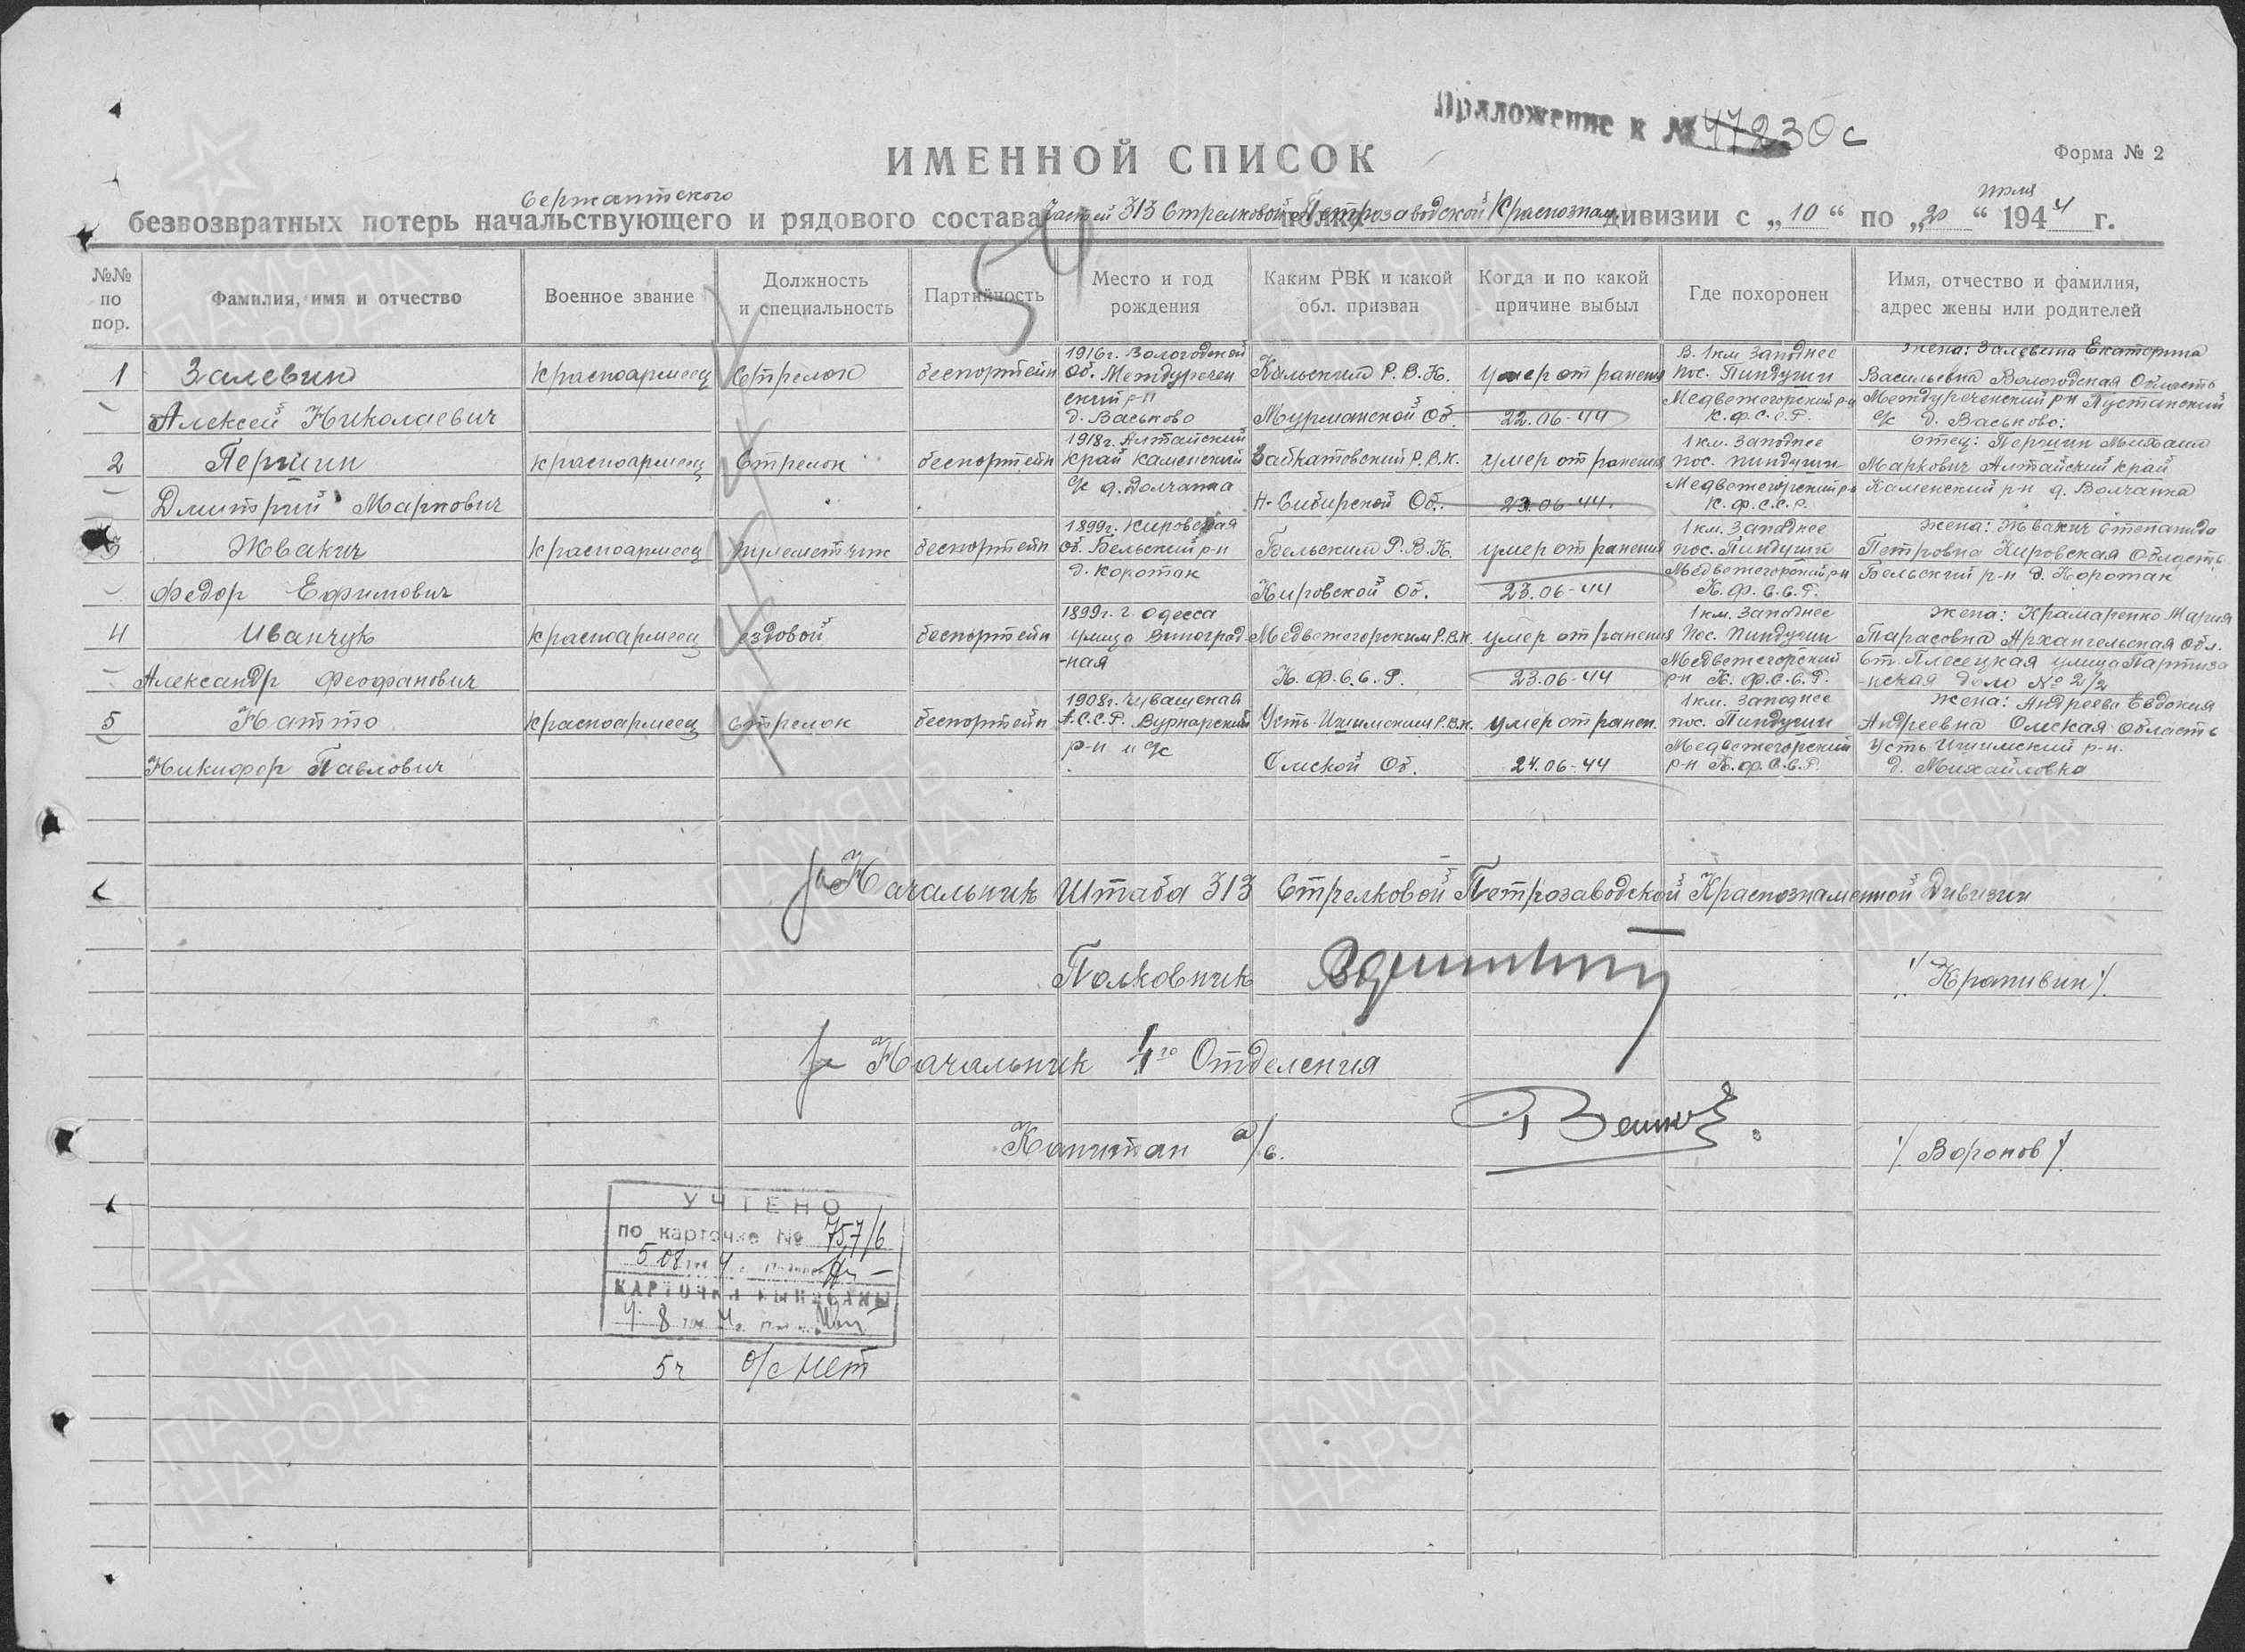 Приложение к № 47230с
Форма № 2
ИМЕННОЙ СПИСОК
сержантского
июля
безвозвратных потерь начальствующего и рядового состава частей 313 Стрелковой Петрозаводской Краснознам. дивизии с „10“ по „20“ 1944 г.
54
№№ по пор.
Фамилия, имя и отчество
Военное звание
Должность и специальность
Партийность
Место и год рождения
Каким РВК и какой обл. призван
Когда и по какой причине выбыл
Где похоронен
Имя, отчество и фамилия, адрес жены или родителей
1
Залевин
Алексей Николаевич
красноармеец
Стрелок
беспортейн
1916г. Вологодской
об. Междуречен
ский р-н
д. Васьково
Кольским Р.В.К.
Мурманской Об.
умер от ранения
22.06-44
В. 1км Западнее
пос. Пиндуши
Медвежегорский р-н
К.Ф.С.С.Р.
жена: Залевина Екатерина
Васильевна Вологодская Область
Междуреченский р-н Пустанский
с/с д. Васьково.
2
Першин
Дмитрий Маркович
красноармеец
Стрелок
беспортейн
1918г. Алтайский
край Каменский
с/с д. Долчанка
Н-Сибирской Об.
умер от ранения
23.06-44.
1км. Западнее
пос. Пиндуши
Медвежегорский р-н
К.Ф.С.С.Р.
Отец: Першин Михаил
Маркович Алтайский край
Каменский р-н д. Волчанка
3
Жвакин
Федор Ефимович
красноармеец
пулеметчик
беспортейн
1899г. Кировская
об. Бельский р-н
д. Коротак
Бельским Р.В.К.
Кировской Об.
умер от ранения
23.06-44
1км. Западнее
пос. Пиндуши
Медвежегорский р-н
К.Ф.С.С.Р.
жена: Жвакин Степанида
Петровна Кировская Область
Бельский р-н д. Коротак
4
Иванчук
Александр Феофанович
красноармеец
ездовой
беспортейн
1899г. г. Одесса
улица Виноград
-ная
Медвежегорским Р.В.К.
К.Ф.С.С.Р.
умер от ранения
23.06-44
1км. Западнее
пос. Пиндуши
Медвежегорский
р-н К.Ф.С.С.Р.
жена: Крамаренко Мария
Тарасовна Архангельская обл.
ст. Плесецкая улица Партиза
-нская дом № 2/2
5
Натто
Никифор Павлович
красноармеец
стрелок
беспортейн
1908г. Чувашская
А.С.С.Р. Вурнарский
р-н и с/с
Усть-Ишимским Р.В.К.
Омской Об.
умер от ранен.
24.06-44
1км. Западнее
пос. Пиндуши
Медвежегорский
р-н К.Ф.С.С.Р.
жена: Андреева Евдокия
Андреевна Омская область
Усть Ишимский р-н.
д. Михайловка
За Начальник Штаба 313 Стрелковой Петрозаводской Краснознаменной Дивизии
Полковник
/Крапивин/
Начальник 4го Отделения
Капитан а/с.
/Воронов/
УЧТЕНО
по карточке № 757/6
КАРТОЧКИ ВЫПИСАНЫ
5ч о/с нет
ПАМЯТЬ
НАРОДА